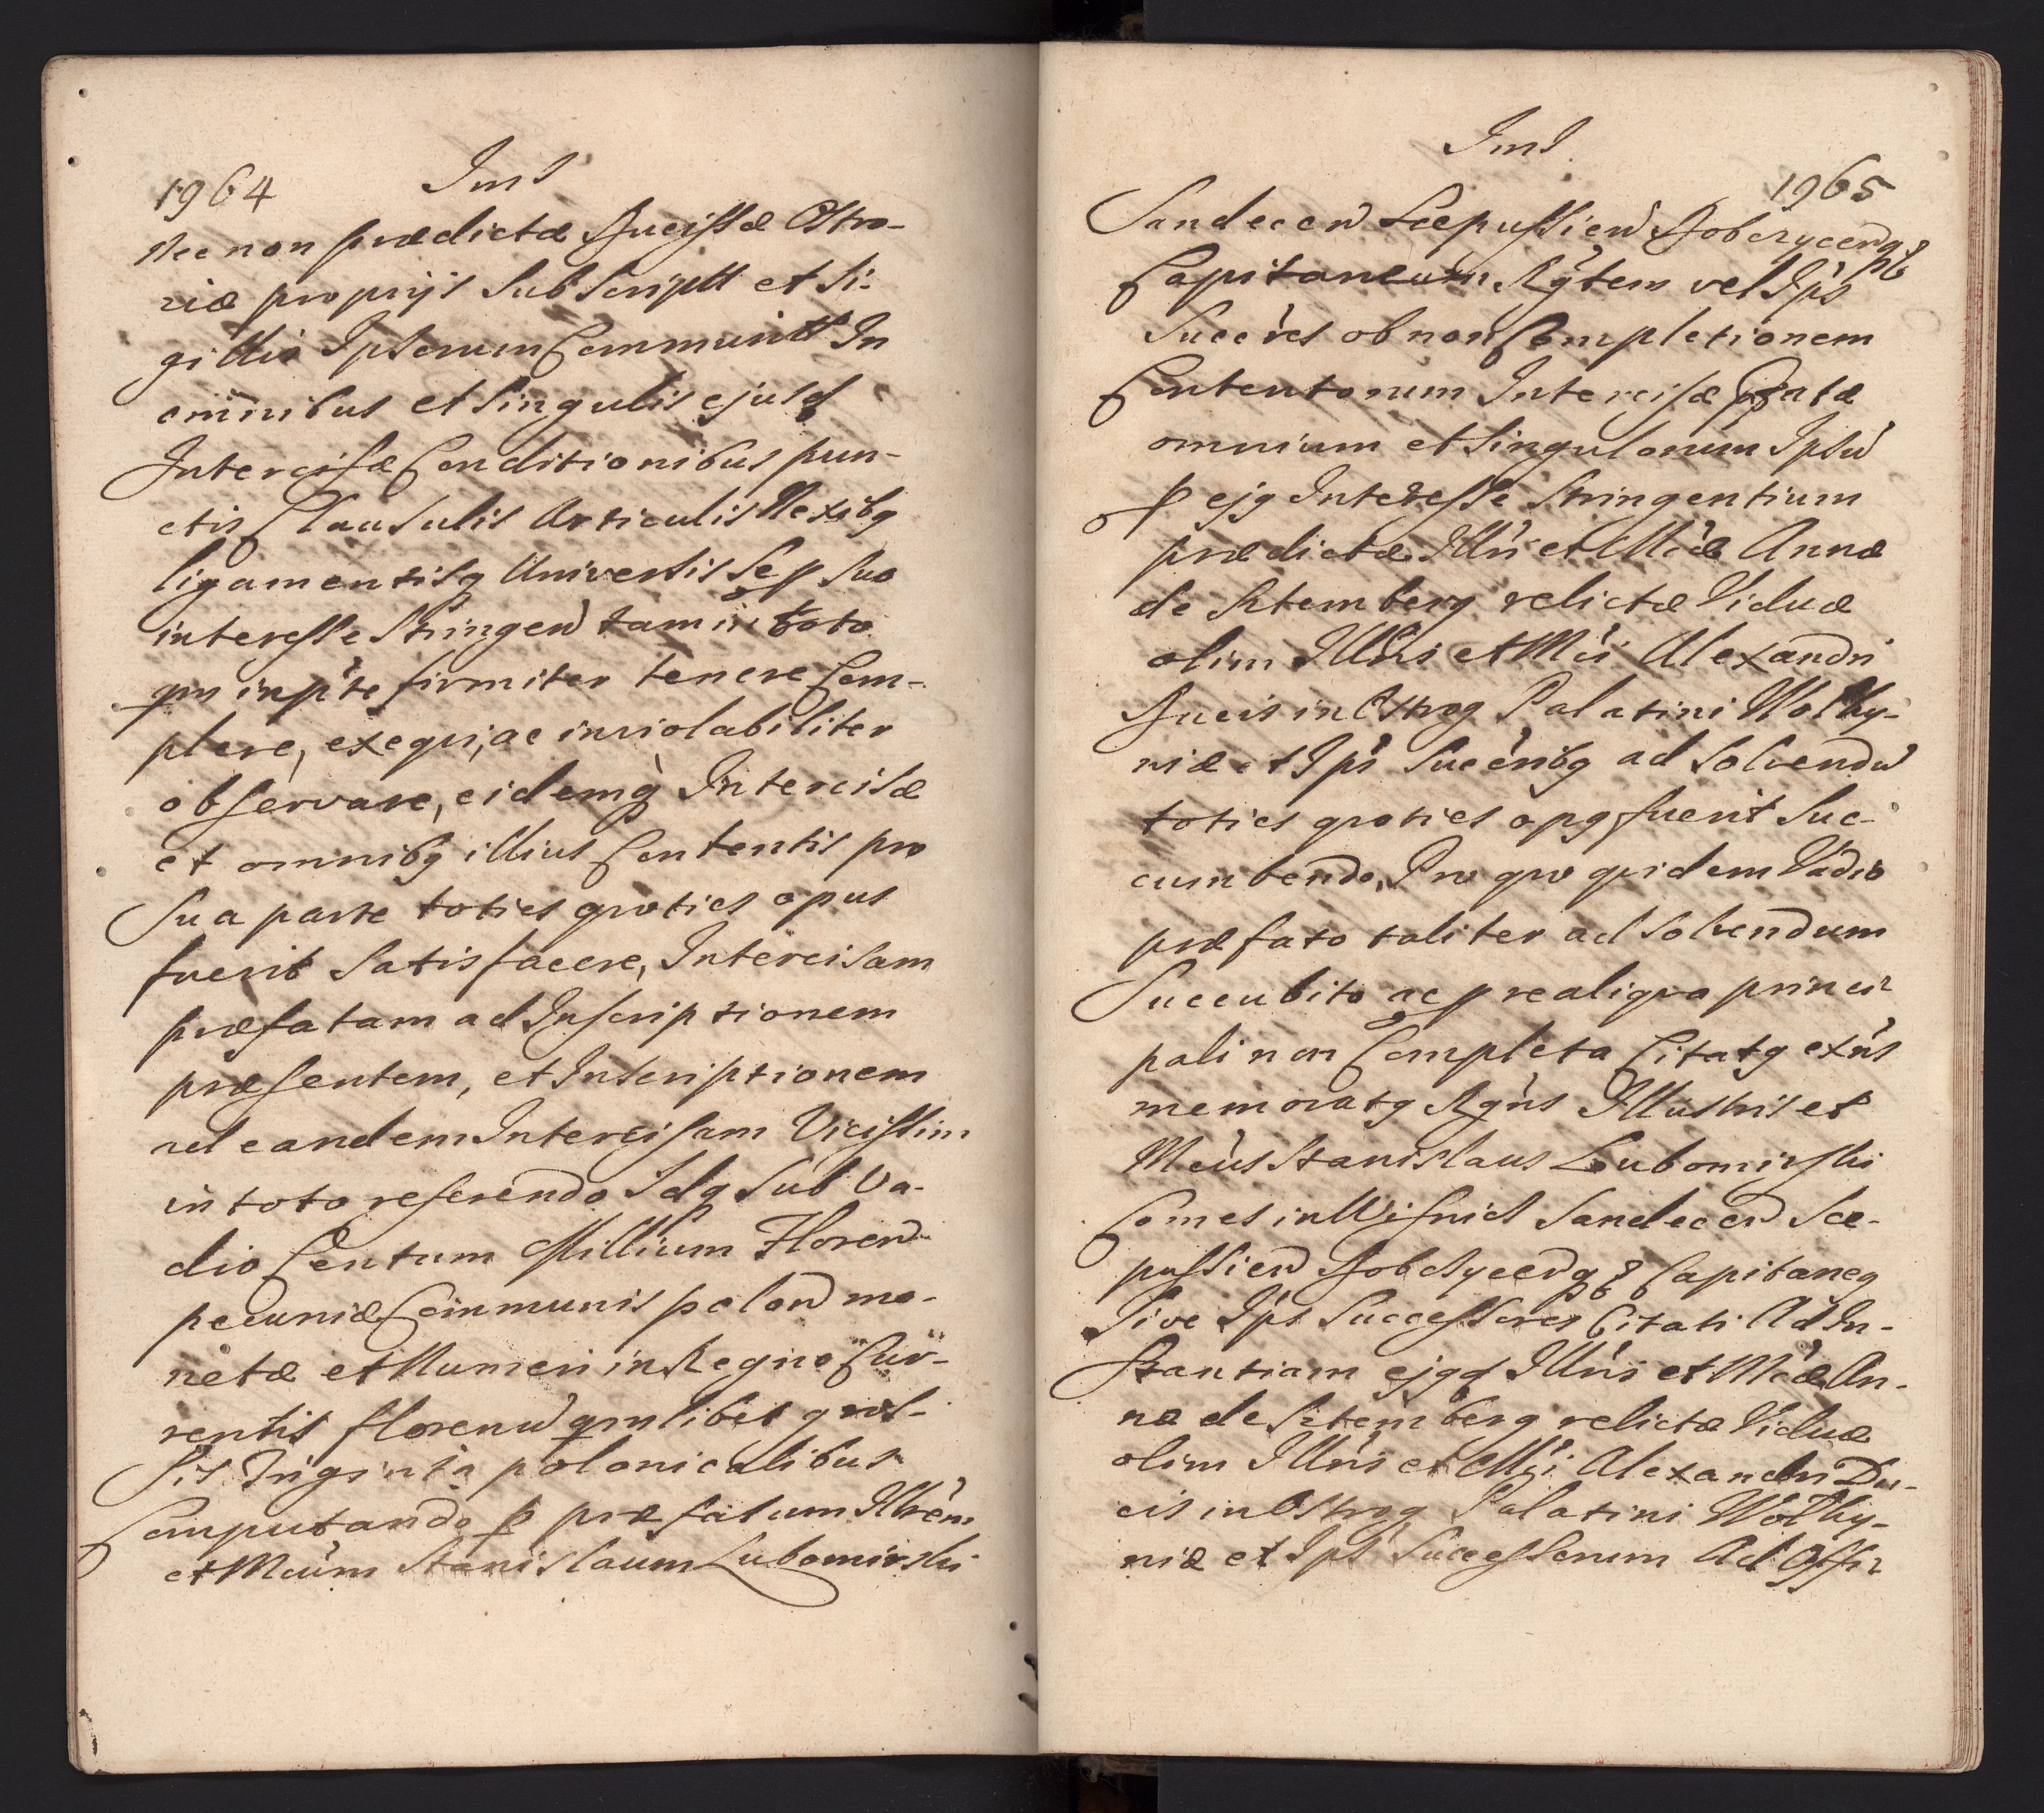 1964 Ims
Nec non prædictæ Ducissæ Ostro-
riæ proprijs Subscriptt et Si-
gillis Ipsorum Communitt In
omnibus et Singulis ejusd
Intercisæ Conditionibus pun-
ctis Clausulis Articulis Nexibq
ligamentisq Universis Se p Suo
interesse Stringen tam in toto
qm in pte firmiter tenere Com-
plere, exeqvi, ac inviolabiliter
observare, eidemq Intercisæ
et omnibq illius Contentis pro
Sua parte toties qvoties opus
fuerit Satisfacere, Intercisam
præfatam ad Inscriptionem
præsentem, et Inscriptionem
ad eandem Intercisam Vicissim
in toto referendo Idq Sub Va-
dio Centum Millium Floren
pecuniæ Communis polon mo-
netæ et Numeri in Regno Cur-
rentis florenu qmlibet gros-
sis Triginta polonicalibus
Computando p præfatum Illrem
et Mcum Stanislaum Lubomirski
Ims
1965
Sandecen Scepussien Dobczycenq &
Capitaneum Rgtem vel Ips
Succres ob non Completionem
Contentorum Intercisæ Pfatæ
omnium et Singulorum Ipsu
p ejq Interesse Stringentium
prædictæ Illris et Mcæ Annæ
de Sztemberg relictæ Viduæ
olim Illris et Mci Alexandri
Ducis in Ostrog Palatini Wolhy-
niæ et Ips Succribq ad Solvendu
toties qvoties opq fuerit Suc-
cumbendo, Pro qvo qvidem Vadio
præfato taliter ad Solvendum
Succubito ac p re aliqva princi-
pali non Completa Citatq exns
memoratq Rgns Illustris et
Mcus Stanislaus Lubomirski
Comes in Wisnicz Sandecen Sce-
pussien Dobczycenq & Capitaneq
Sive Ips Successores Citati Ad In-
stantiam ejqd Illris et Mcæ An-
næ de Sztemberg relictæ Viduæ
olim Illris et Mci Alexandri Du-
cis in Ostrog Palatini Wolhy-
niæ et Ips Successorum Ad Offi-